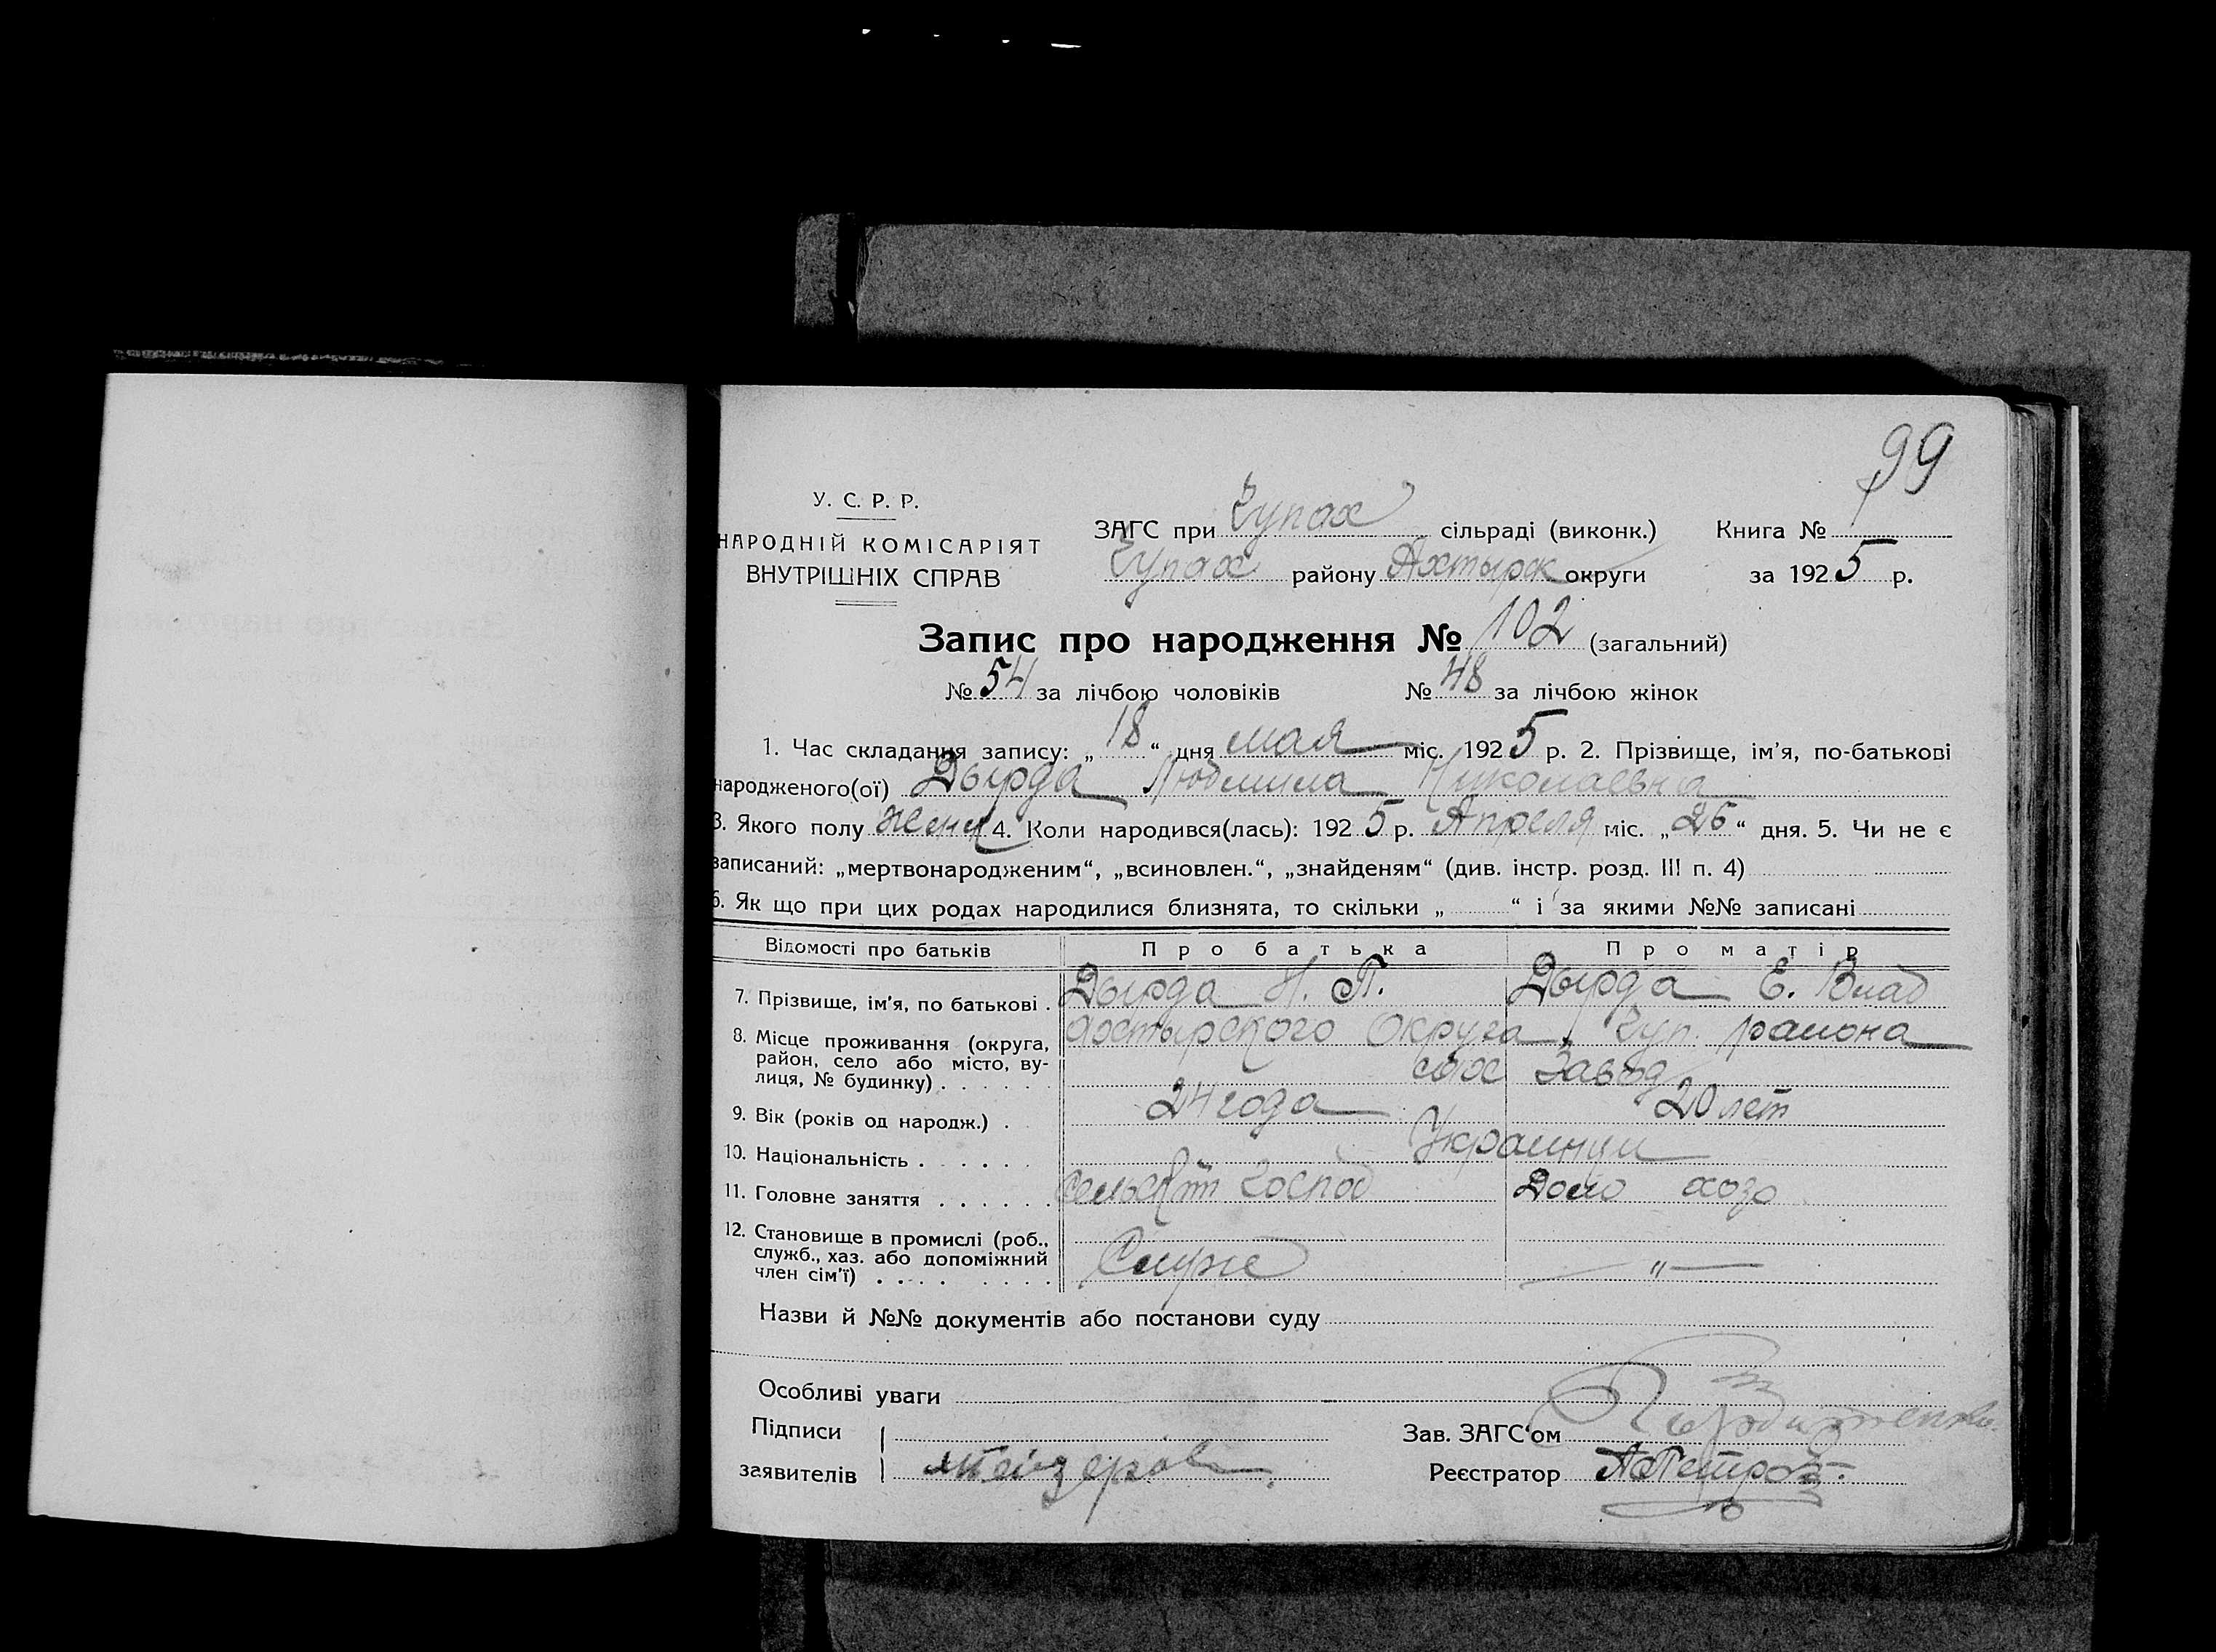 99
У. С. Р. Р.
НАРОДНІЙ КОМІСАРІЯТ
ВНУТРІШНІХ СПРАВ
ЗАГС при Чупах сільраді (виконк.) Книга №
Чупах району Ахтырск округи за 1925 р.
Запис про народження № 102 (загальний)
№ 54 за лічбою чоловіків № 48 за лічбою жінок
1. Час складання запису: „18“ дня мая міс. 1925 р. 2. Прізвище, ім'я, по-батькові
народженого(ої) Дырда Людмила Николаевна
3. Якого полу жен 4. Коли народився(лась): 1925 р. Апреля міс. „26“ дня. 5. Чи не є
записаний: „мертвонародженим“, „всиновлен.“, „знайденям“ (див. інстр. розд. III п. 4)
6. Як що при цих родах народилися близнята, то скільки „ “ і за якими №№ записані
Відомості про батьків Про батька Про матір
7. Прізвище, ім'я, по батькові . Дырда Н. П. Дырда Е. Влад
8. Місце проживання (округа, район, село або місто, вулиця, № будинку) . . . . . Ахтырского Округа, Чуп. района
Завод
9. Вік (років од народж.) . 24 года 20 лет
10. Національність . . . . . . Украинцы
11. Головне заняття . . . . . . господ Дома хозя
12. Становище в промислі (роб., служб., хаз. або допоміжний член сім'ї) . . . . . . . . Служ — „ —
Назви й №№ документів або постанови суду
Особливі уваги
Підписи
заявителів
Зав. ЗАГС'ом
Реєстратор